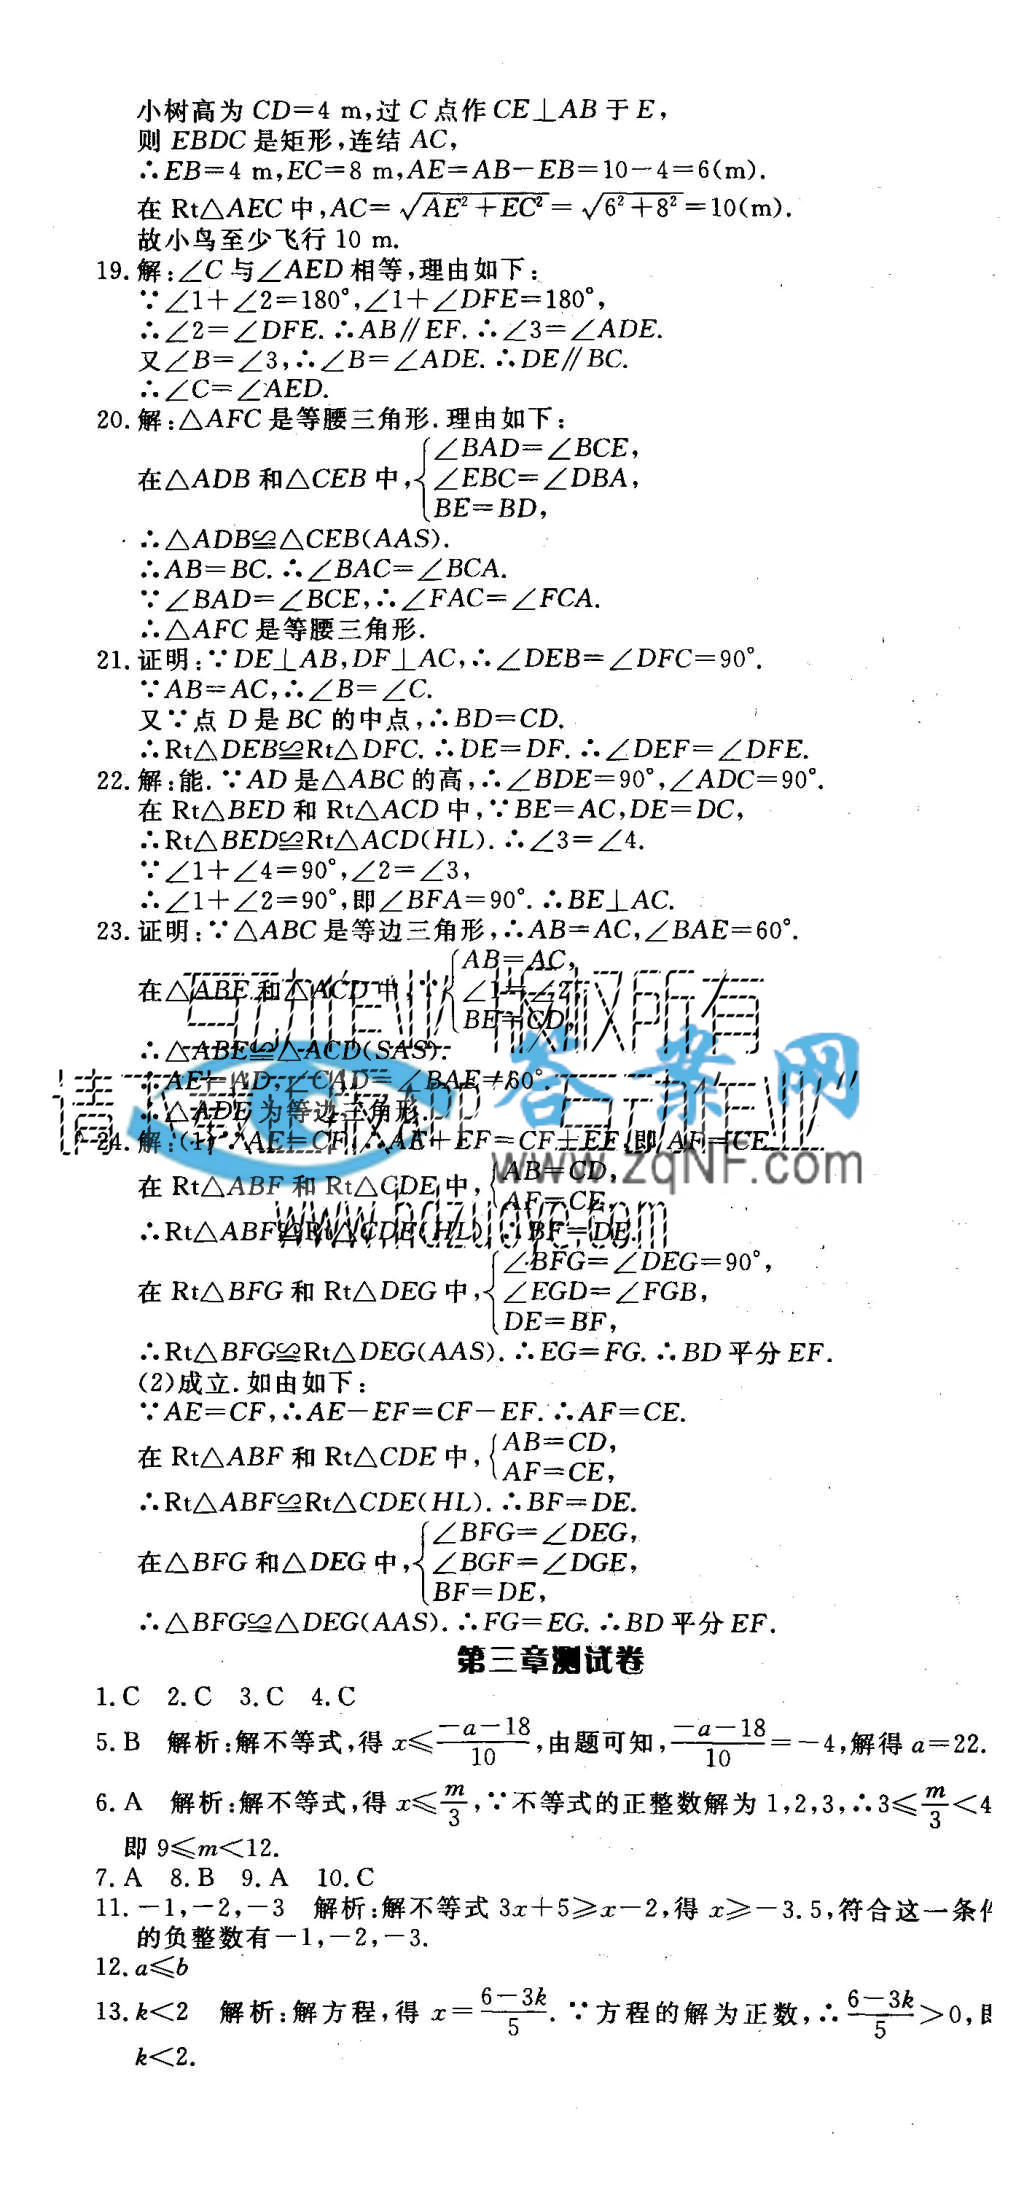 小树高为 CD=4 m,过 C 点作 CE⊥AB 于 E,
则 EBDC 是矩形,连结 AC,
∴EB=4 m,EC=8 m,AE=AB-EB=10-4=6(m).
在 Rt△AEC 中,AC=√(AE²+EC²)=√(6²+8²)=10(m).
故小鸟至少飞行 10 m.
19.解:∠C 与∠AED 相等,理由如下:
∵∠1+∠2=180°,∠1+∠DFE=180°,
∴∠2=∠DFE.∴AB∥EF.∴∠3=∠ADE.
又∠B=∠3,∴∠B=∠ADE.∴DE∥BC.
∴∠C=∠AED.
20.解:△AFC 是等腰三角形.理由如下:
在△ADB 和△CEB 中,{∠BAD=∠BCE,
∠EBC=∠DBA,
BE=BD,
∴△ADB≌△CEB(AAS).
∴AB=BC.∴∠BAC=∠BCA.
∵∠BAD=∠BCE,∴∠FAC=∠FCA.
∴△AFC 是等腰三角形.
21.证明:∵DE⊥AB,DF⊥AC,∴∠DEB=∠DFC=90°.
∵AB=AC,∴∠B=∠C.
又∵点 D 是 BC 的中点,∴BD=CD.
∴Rt△DEB≌Rt△DFC.∴DE=DF.∴∠DEF=∠DFE.
22.解:能.∵AD 是△ABC 的高,∴∠BDE=90°,∠ADC=90°.
在 Rt△BED 和 Rt△ACD 中,∵BE=AC,DE=DC,
∴Rt△BED≌Rt△ACD(HL).∴∠3=∠4.
∵∠1+∠4=90°,∠2=∠3,
∴∠1+∠2=90°,即∠BFA=90°.∴BE⊥AC.
23.证明:∵△ABC 是等边三角形,∴AB=AC,∠BAE=60°.
在△ABE 和△ACD 中,∵{AB=AC,
∠1=∠2,
BE=CD,
∴△ABE≌△ACD(SAS).
∴AE=AD,∠CAD=∠BAE=60°.
∴△ADE 为等边三角形.
答案网
www.zqNF.com
24.解:(1)∵AE=CF,∴AE+EF=CF+EF,即 AF=CE.
在 Rt△ABF 和 Rt△CDE 中,{AB=CD,
AF=CE,
∴Rt△ABF≌Rt△CDE(HL).∴BF=DE.
www.bdzuoye.com
在 Rt△BFG 和 Rt△DEG 中,{∠BFG=∠DEG=90°,
∠EGD=∠FGB,
DE=BF,
∴Rt△BFG≌Rt△DEG(AAS).∴EG=FG.∴BD 平分 EF.
(2)成立.如由如下:
∵AE=CF,∴AE-EF=CF-EF.∴AF=CE.
在 Rt△ABF 和 Rt△CDE 中,{AB=CD,
AF=CE,
∴Rt△ABF≌Rt△CDE(HL).∴BF=DE.
在△BFG 和△DEG 中,{∠BFG=∠DEG,
∠BGF=∠DGE,
BF=DE,
∴△BFG≌△DEG(AAS).∴FG=EG.∴BD 平分 EF.
第三章测试卷
1.C 2.C 3.C 4.C
5.B 解析:解不等式,得 x≤(-a-18)/10,由题可知,(-a-18)/10=-4,解得 a=22.
6.A 解析:解不等式,得 x≤m/3,∵不等式的正整数解为 1,2,3,∴3≤m/3<4
即 9≤m<12.
7.A 8.B 9.A 10.C
11.-1,-2,-3 解析:解不等式 3x+5≥x-2,得 x≥-3.5,符合这一条件
的负整数有-1,-2,-3.
12.a≤b
13.k<2 解析:解方程,得 x=(6-3k)/5.∵方程的解为正数,∴(6-3k)/5>0,即
k<2.